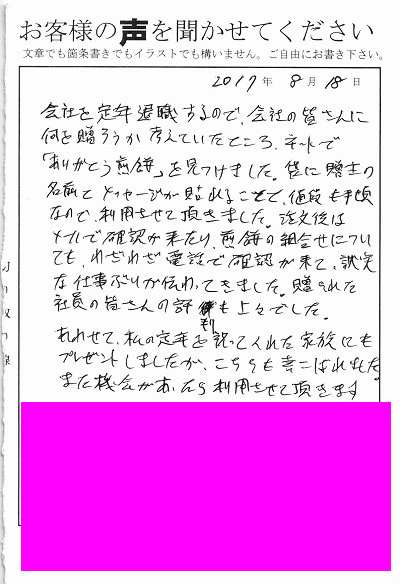 お客様の声を聞かせてください
文章でも箇条書きでもイラストでも構いません。ご自由にお書き下さい。
2017年 8月 18日
会社を定年退職するので、会社の皆さんに
何を贈ろうか考えていたところ、ネットで
「ありがとう煎餅」を見つけました。袋に贈主の
名前とメッセージが貼れることで、値段も手頃
なので、利用させて頂きました。注文後は
メールで確認が来たり、煎餅の組合せについ
ても、わざわざ電話で確認が来て、誠実
な仕事ぶりが伝わってきました。贈られた
社員の皆さんの評判も上々でした。
あわせて、私の定年を祝ってくれた家族にも
プレゼントしましたが、こちらも喜こばれました。
また機会があったら利用させて頂きます